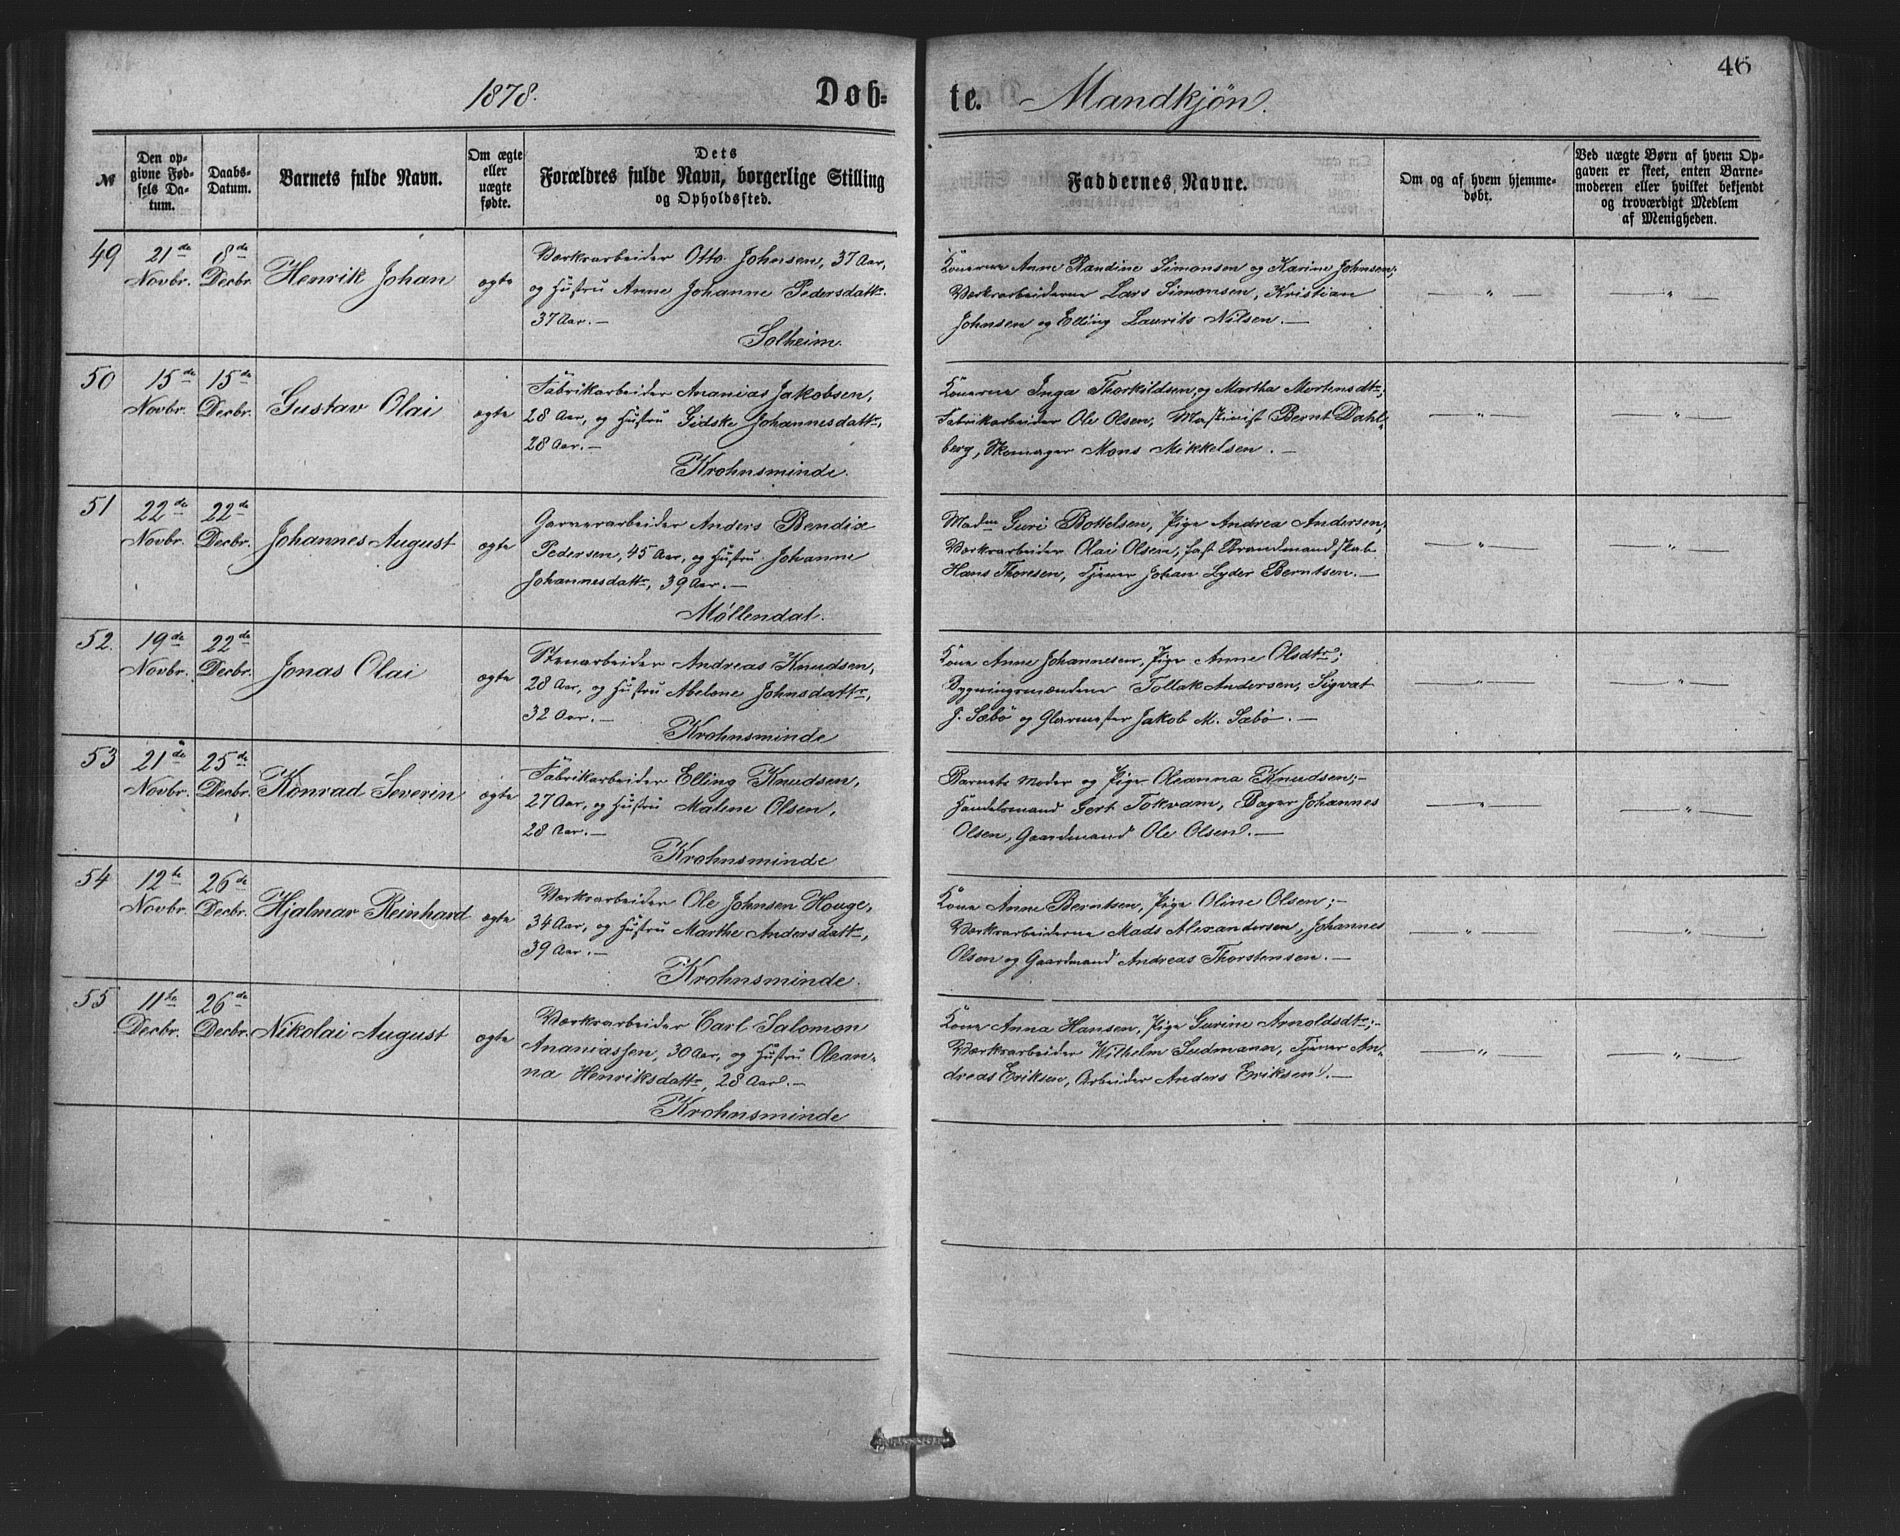 46
1878. Døb-te. Mandkjøn.
№
Den opgivne Fødsels Datum.
Daabs-Datum.
Barnets fulde Navn.
Om ægte eller uægte fødte.
Dets Forældres fulde Navn, borgerlige Stilling og Opholdssted.
Faddernes Navne.
Om og af hvem hjemmedøbt.
Ved uægte Børn af hvem Opgaven er skeet, enten Barnemoderen eller hvilket bekjendt og troværdigt Medlem af Menigheden.
49 21de Novbr. 8de Decbr. Henrik Johan ægte
Værksarbeider Otto Johnsen, 37 Aar,
og Hustru Anne Johanne Pedersdattr.
37 Aar.—
Solheim.
Konerne Anne Randine Simonsen og Karine Johnsen;
Værksarbeiderne Lars Simonsen, Kristian
Johnsen og Elling Laurits Nilsen.—
— " — — " —
50 15de Novbr. 15de Decbr. Gustav Olai ægte
Fabrikarbeider Ananias Jakobsen,
28 Aar, og Hustru Gidske Johannesdattr,
28 Aar.—
Krohnsminde.
Konerne Inga Thorkildsen, og Martha Mortensdtr;
Fabrikarbeider Ole Olsen, Maskinist Bernt Dahl-
berg, Skomager Mons Mikkelsen.—
— " — — " —
51 22de Novbr. 22de Decbr. Johannes August ægte
Garverarbeider Anders Bendix
Pedersen, 45 Aar, og Hustru Johanne
Johannesdattr, 39 Aar.—
Møllendal.
Madm Guri Bottelsen, Pige Andrea Andersen;
Værksarbeider Olai Olsen, fast Brandmandskab
Hans Thoresen, Tjener Johan Lyder Berntsen.—
— " — — " —
52. 19de Novbr. 22de Decbr. Jonas Olai ægte
Stenarbeider Andreas Knudsen,
28 Aar, og Hustru Abelone Johnsdattr,
32 Aar.—
Krohnsminde
Kone Anne Johannesen, Pige Anne Olsdtr;
Bygningsmændene Tollak Andersen, Sigvat
J. Sæbö og Glarmester Jakob M. Sæbö.—
— " — — " —
53 21de Novbr. 25de Decbr. Konrad Severin ægte
Fabrikarbeider Elling Knudsen,
27 Aar, og Hustru Malene Olsen,
28 Aar.—
Krohnsminde
Barnets Moder og Pige Oleanna Knudsen;—
Handelsmand Gert Tokvam, Bager Johannes
Olsen, Gaardmand Ole Olsen.—
— " — — " —
54 12te Novbr. 26de Decbr. Hjalmar Reinhard ægte
Værksarbeider Ole Johnsen Houge,
34 Aar, og Hustru Marthe Andersdattr,
39 Aar.—
Krohnsminde.
Kone Anne Berntsen, Pige Oline Olsen;—
Værksarbeiderne Mads Alexandersen, Johannes
Olsen og Gaardmand Andreas Thorstensen.—
— " — — " —
55 11te Decbr. 26de Decbr. Nikolai August ægte
Værksarbeider Carl Salomon
Ananiassen, 30 Aar, og Hustru Olean-
na Henriksdattr, 28 Aar.—
Krohnsminde
Kone Anna Hansen, Pige Gurine Arnoldsdtr;—
Værksarbeider Wilhelm Sudmann, Tjener An-
dreas Eriksen, Arbeider Anders Eriksen.—
— " — — " —